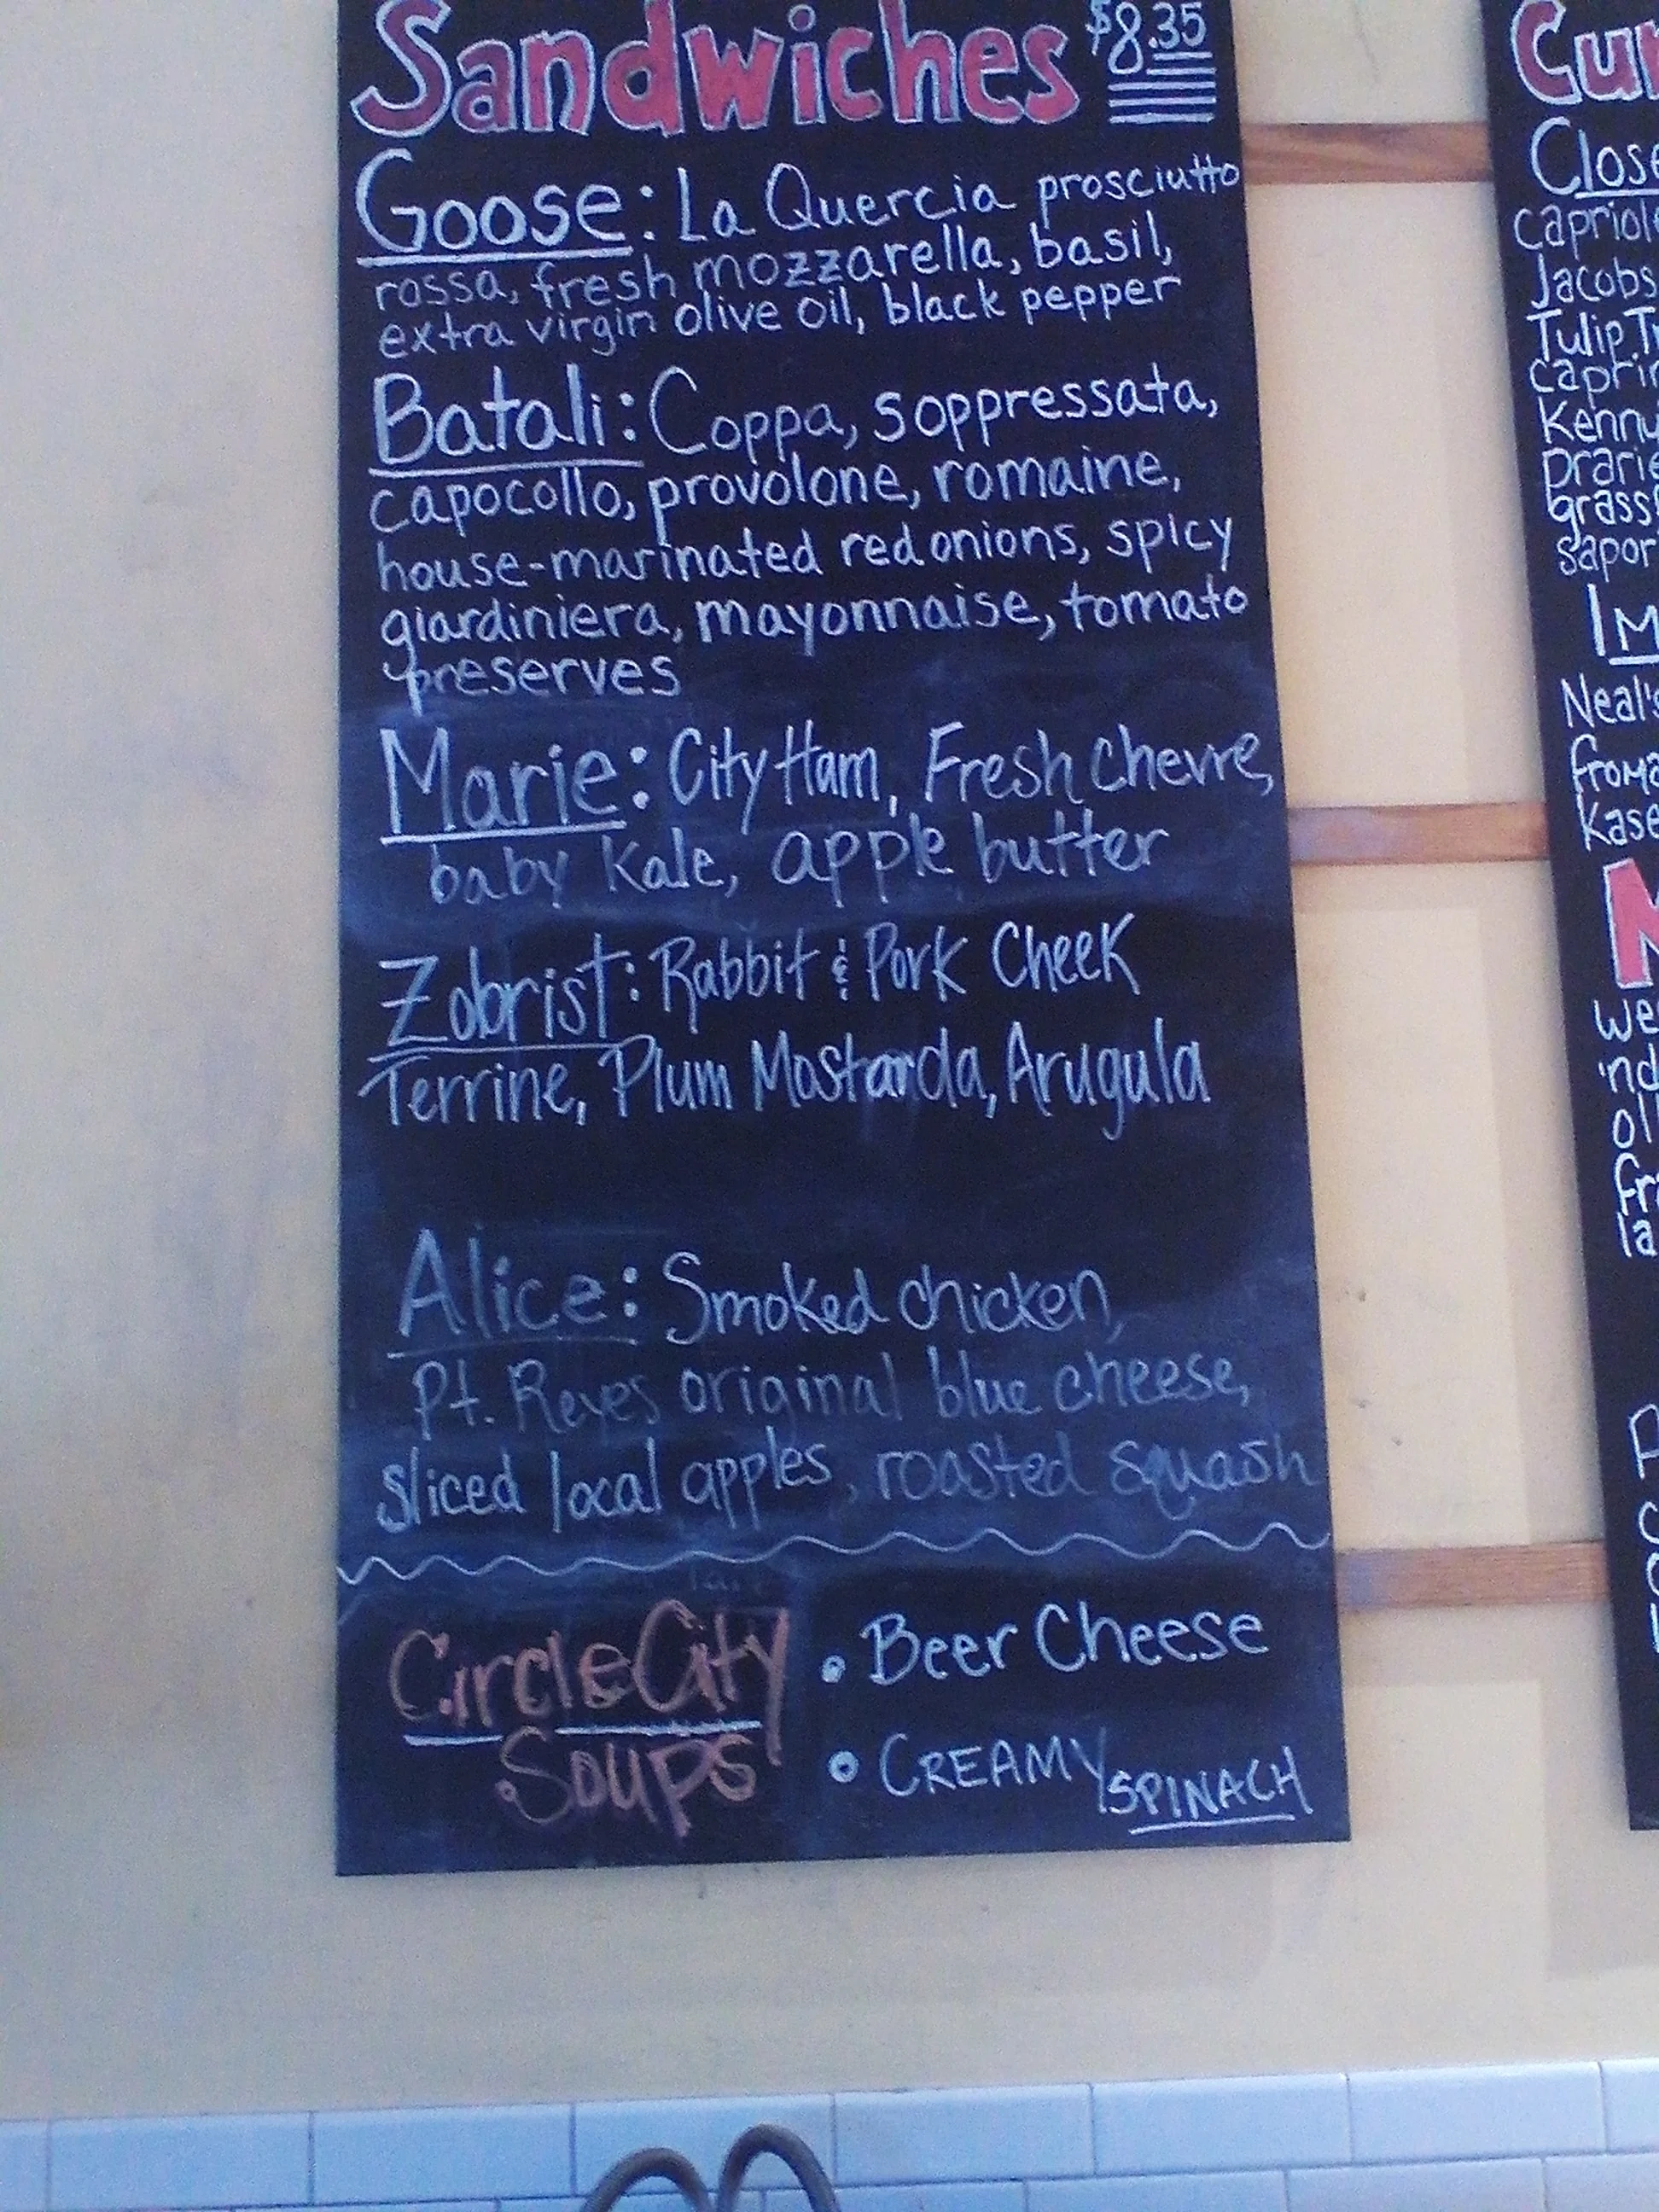 Sandwiches $8.35
Goose: La Quercia prosciutto
rossa, fresh mozzarella, basil,
extra virgin olive oil, black pepper
Batali: Coppa, soppressata,
capocollo, provolone, romaine,
house-marinated red onions, spicy
giardiniera, mayonnaise, tomato
preserves
Marie: City Ham, Fresh Chevre,
baby Kale, apple butter
Zobrist: Rabbit & Pork Cheek
Terrine, Plum Mostarda, Arugula
Alice: Smoked chicken,
Pt. Reyes original blue cheese,
sliced local apples, roasted squash
Circle City
Soups
• Beer Cheese
• CREAMY SPINACH
Cu
Close
capriol
Jacobs
Tulip Tr
caprin
Kenny
prarie
grass
sapor
Im
Neal's
froma
Kase
we
ind
oli
fr
la